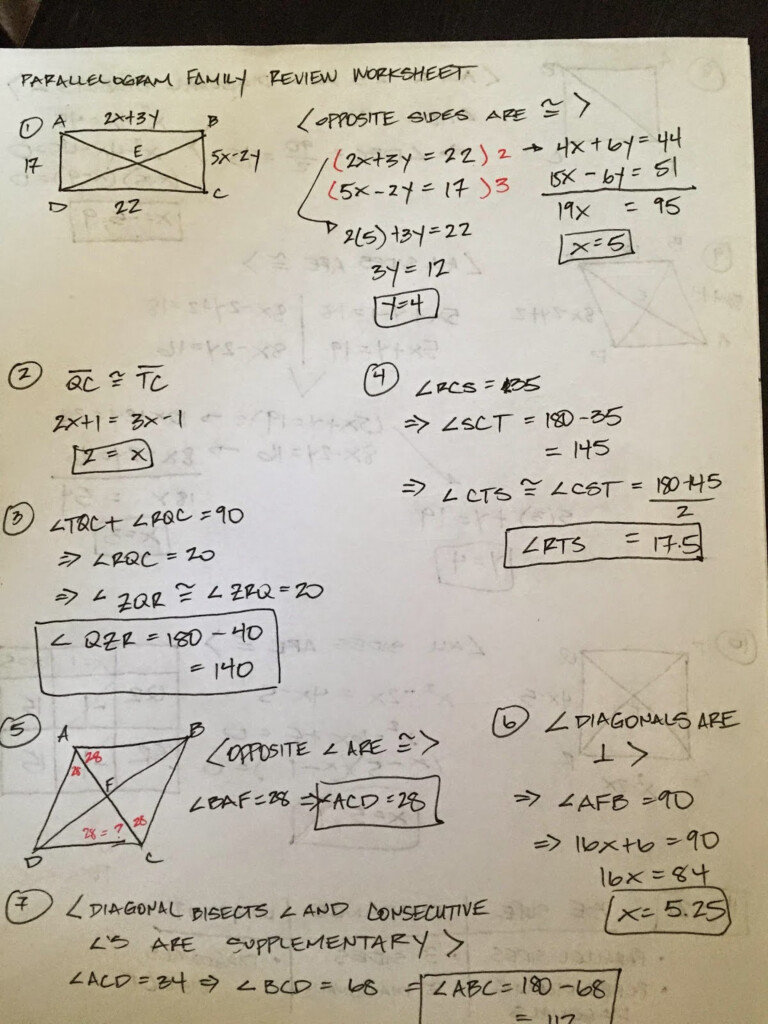 PARALLELOGRAM FAMILY REVIEW WORKSHEET
① A 2x+3y B
17 E 5x-2y
D 22 C
<OPPOSITE SIDES ARE ≅>
(2x+3y = 22) 2 → 4x+6y = 44
(5x-2y = 17) 3 15x - 6y = 51
19x = 95
x = 5
2(5)+3y = 22
3y = 12
y = 4
② QC ≅ TC
2x+1 = 3x-1
2 = x
③ ∠TQC + ∠RQC = 90
⇒ ∠RQC = 20
⇒ ∠ZQR ≅ ∠ZRQ = 20
∠QZR = 180 - 40
= 140
④ ∠RCS = 35
⇒ ∠SCT = 180-35
= 145
⇒ ∠CTS ≅ ∠CST = 180-145
2
∠RTS = 17.5
⑤ A B
28 28
F
28 = ? 28
D C
<OPPOSITE ∠ ARE ≅>
∠BAF = 28 ⇒ ∠ACD = 28
⑥ <DIAGONALS ARE
⊥ >
⇒ ∠AFB = 90
⇒ 16x+6 = 90
16x = 84
x = 5.25
⑦ <DIAGONAL BISECTS ∠ AND CONSECUTIVE
∠'S ARE SUPPLEMENTARY>
∠ACD = 34 ⇒ ∠BCD = 68 = ∠ABC = 180-68
= 112